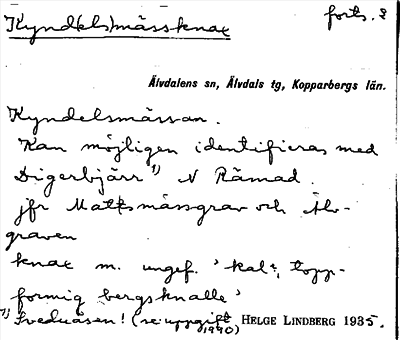 Kynd(els)mässknax
forts. 2
Älvdalens sn, Älvdals tg, Kopparbergs län.
Kyndelsmässan.
Kan möjligen identifieras med
Digerbjärr ¹) N Råmad.
jfr Mattsmässgrav och Älv-
graven
knax m. ungef. 'kal, topp-
formig bergsknalle'
¹) Sveduåsen! (se uppgift 1990) HELGE LINDBERG 1935.